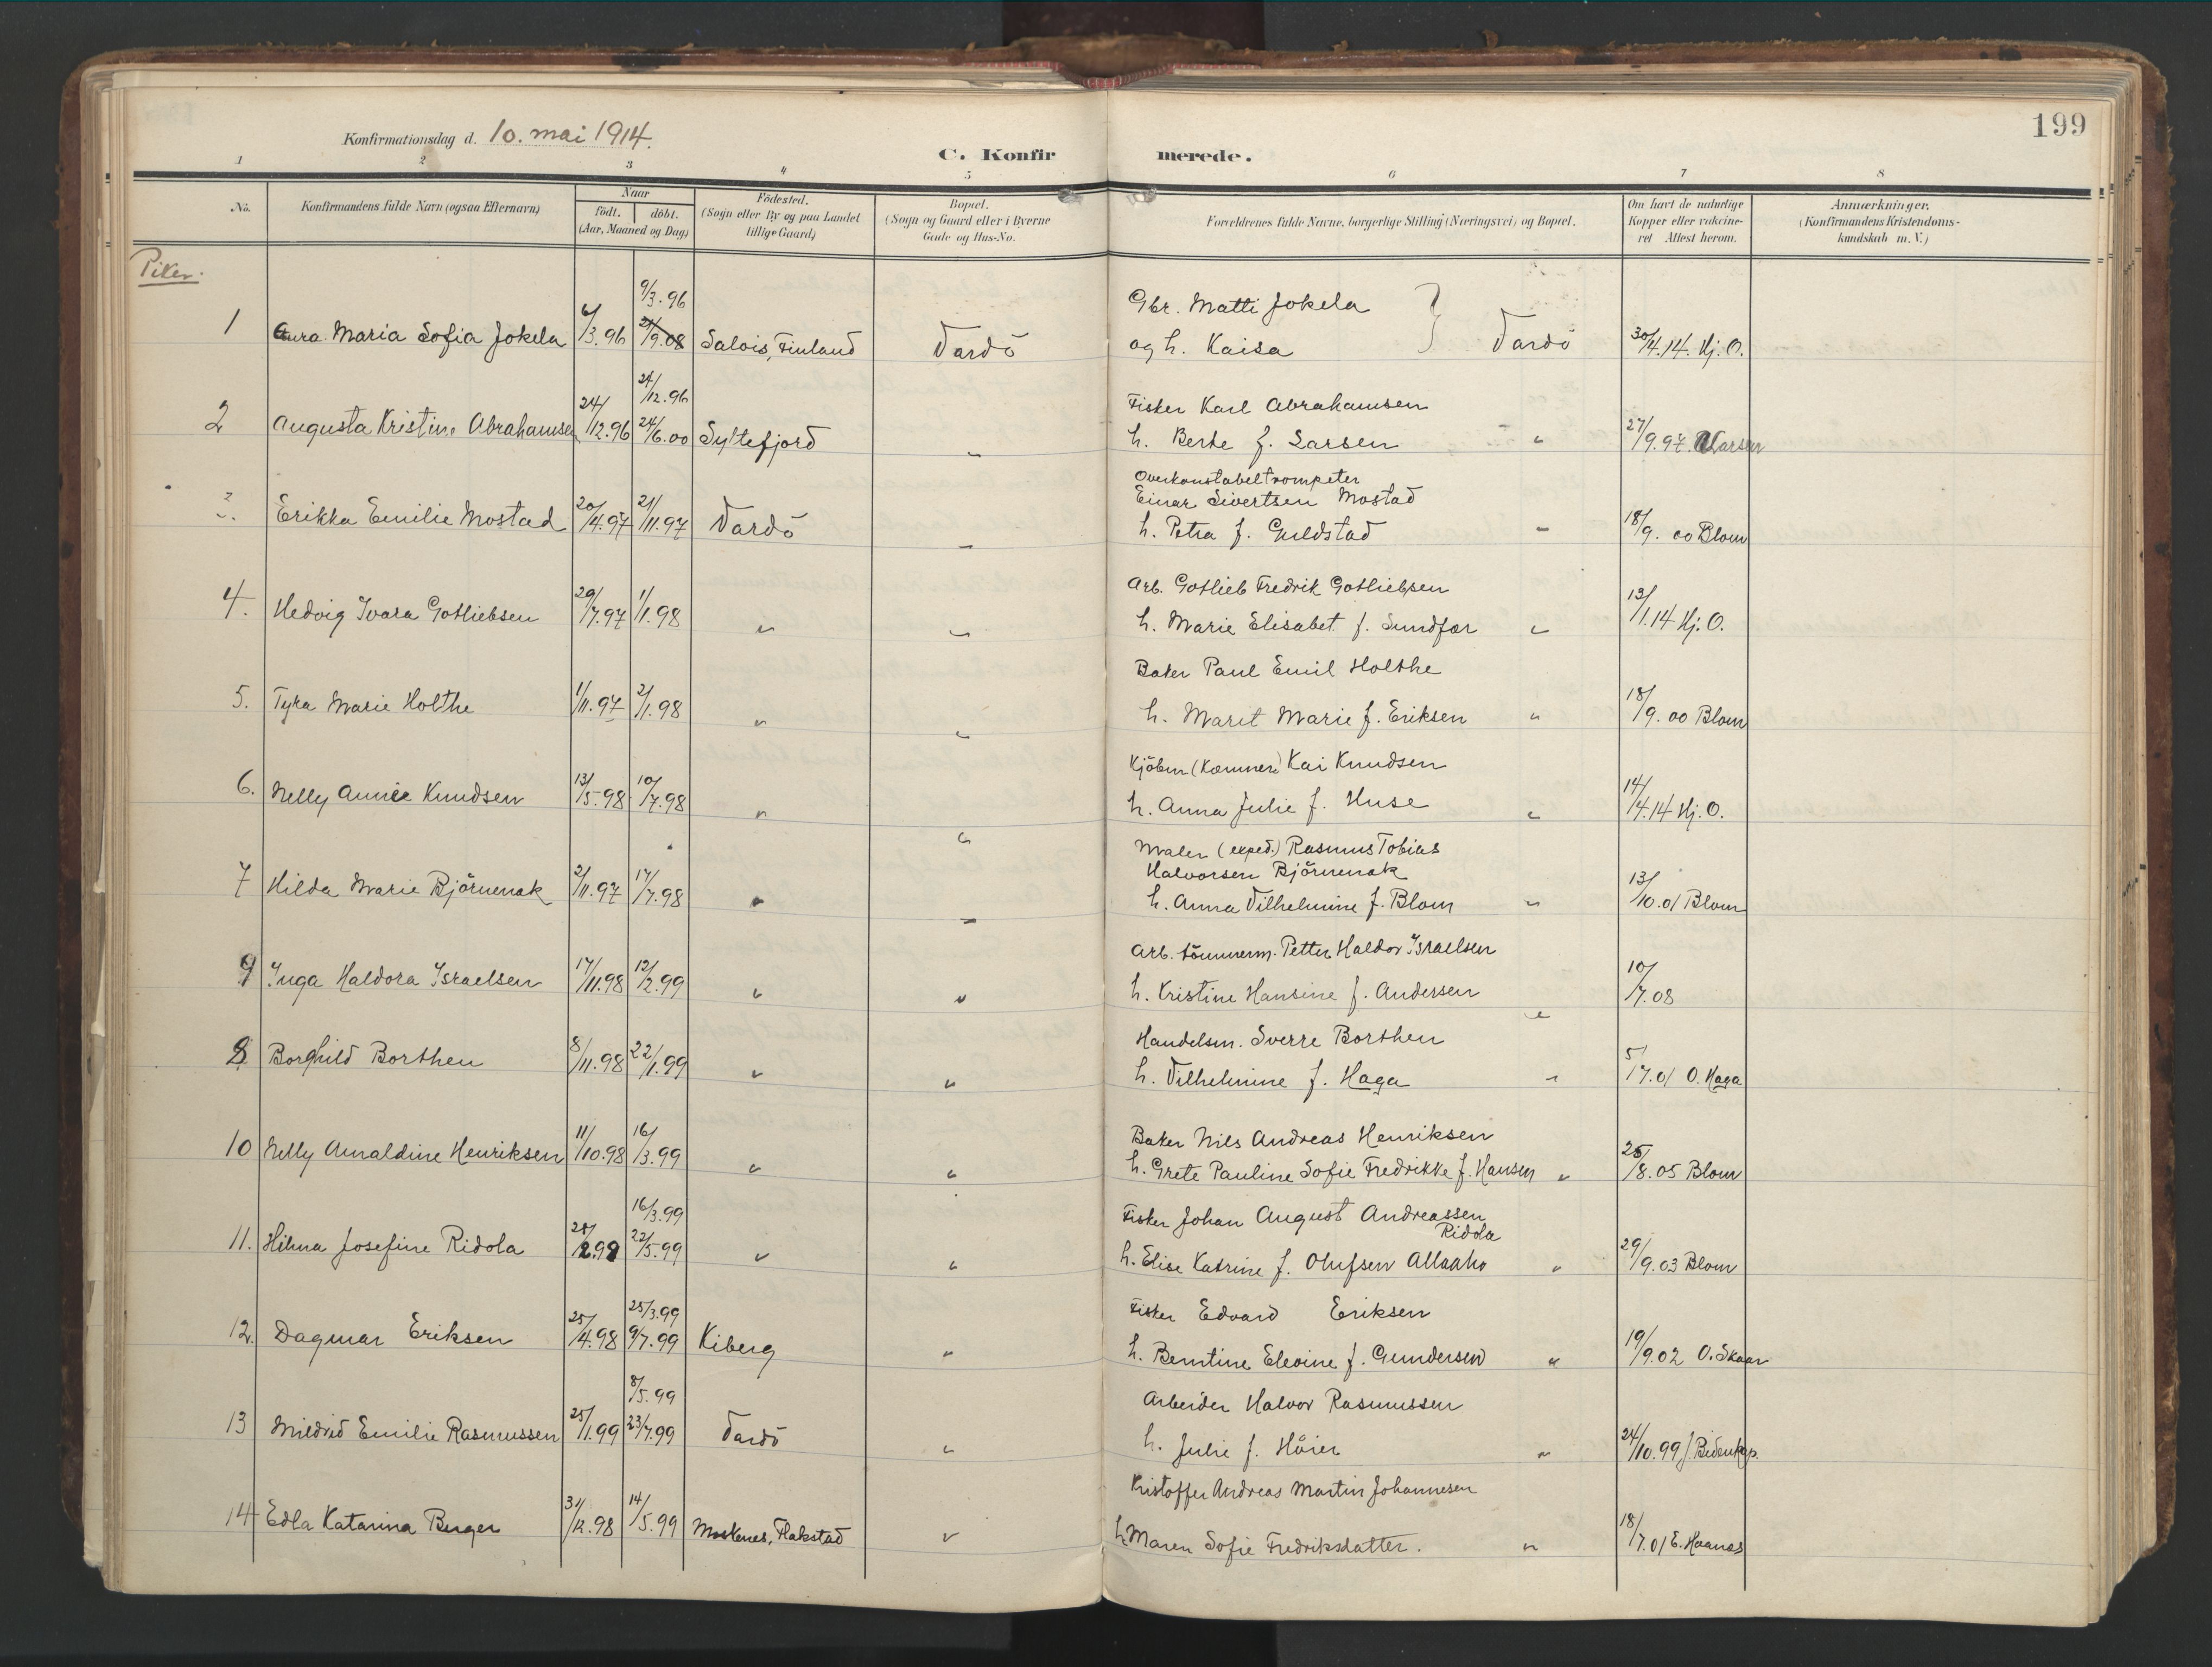 199
Konfirmationsdag d. 10. mai 1914.
C. Konfirmerede.
1 2 3 4 5 6 7 8
No.
Konfirmandens fulde Navn (ogsaa Efternavn)
Naar
födt. döbt.
(Aar, Maaned og Dag)
Födested.
(Sogn eller By og paa Landet
tillige Gaard)
Bopæl.
(Sogn og Gaard eller i Byerne
Gade og Hus-No.
Forældrenes fulde Navne, borgerlige Stilling (Næringsvei) og Bopæl.
Om havt de naturlige
Kopper eller vakcine-
ret Attest herom.
Anmærkninger.
(Konfirmandens Kristendoms-
kundskab m. V.)
Piker.
9/3.96
1 Maria Sofia Jokela 6/3.96 21/9.08 Salois, Finland Vardö
Gbr. Matti Jokela
og h. Kaisa } Vardö 30/4.14. Hj. O.
24/12.96
2 Augusta Kristine Abrahamsen 24/12.96 24/6.00 Syltefjord "
Fisker Karl Abrahamsen
h. Berte f. Larsen " 27/9.97. Larsen
3. Erikka Emilie Mostad 20/4.97 21/11.97 Vardö "
Overkonstabeltrompeter
Einar Sivertsen Mostad
h. Petra f. Guldstad " 18/9.00 Blom
4. Hedvig Ivara Gotliebsen 29/7.97 1/1.98 " "
Arb. Gotlieb Fredrik Gotliebsen
h. Marie Elisabet f. Sundfær " 13/1.14 Hj. O.
5. Tyra Marie Holthe 1/11.97 2/1.98 " "
Baker Paul Emil Holthe
h. Marit Marie f. Eriksen " 18/9.00 Blom
6. Nelly Annie Knudsen 13/5.98 10/7.98 " "
Kjöbm (Kæmner) Kai Knudsen
h. Anna Julie f. Huse " 14/4.14 Hj. O.
7 Hilda Marie Björnenak 2/11.97 17/7.98 " "
Maler (exped.) Rasmus Tobias
Halvorsen Björnenak
h. Anna Vilhelmine f. Blom " 13/10.01 Blom
9 Inga Haldora Israelsen 17/11.98 12/2.99 " "
Arb. tömmerm. Petter Haldor Israelsen
h. Kristine Hansine f. Andersen " 10/7.08
8 Borghild Borthen 8/11.98 22/1.99 " "
Handelsm. Sverre Borthen
h. Vilhelmine f. Haga " 5/7.01 O. Haga
10 Nelly Arnaldine Henriksen 11/10.98 16/3.99 " "
Baker Nils Andreas Henriksen
h. Grete Pauline Sofie Fredrikke f. Hansen " 25/8.05 Blom
16/3.99
11. Hilma Josefine Ridola 28/12.98 22/5.99 " "
Fisker Johan August Andreassen
Ridola
h. Elise Katrine f. Olufsen Allaaho " 29/9.03 Blom
25/3.99
12. Dagmar Eriksen 25/4.98 9/7.99 Kiberg "
Fisker Edvard Eriksen
h. Berntine Elevine f. Gundersen " 19/9.02 O. Skaar
8/5.99
13 Mildrid Emilie Rasmussen 25/1.99 23/7.99 Vardö "
Arbeider Halvor Rasmussen
h. Julie f. Höier " 24/10.99 J. Bidenkap.
14 Edla Katarina Berger 31/12.98 14/5.99 Moskenes, Flakstad "
Kristoffer Andreas Martin Johannesen
h. Maren Sofie Fredriksdatter. " 18/7.01 E. Haanes